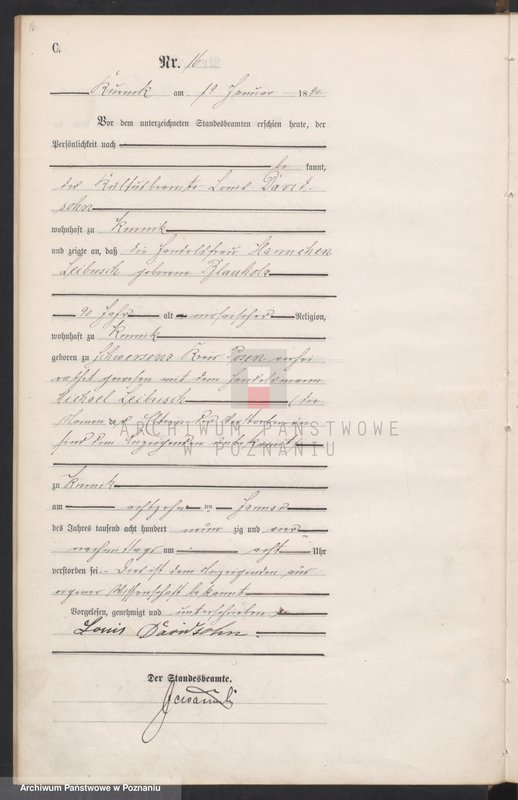 16
C.
Nr. 16
Kurnik am 19 Januar 18
Vor dem unterzeichneten Standesbeamten erschien heute, der
Persönlichkeit nach
be kannt,
der Kultusbeamte Louis David-
sohn
wohnhaft zu Kurnik
und zeigte an, daß die Handelsfrau Hannchen
Leibusch geborene Blauholz
90 Jahr alt mosaischer Religion,
wohnhaft zu Kurnik
geboren zu Schwersenz Kreis Posen verhei
rathet gewesen mit dem Handelsmann
Michael Leibusch (die
Namen der Eltern der Verstorbenen
sind dem Anzeigenden unbekannt)
ARCHIWUM PAŃSTWOWE
W POZNANIU
zu Kurnik
am achtzehnten Januar
des Jahres tausend acht hundert neun zig und
nachmittags um acht Uhr
verstorben sei. Dies ist dem Anzeigenden aus
eigener Wissenschaft bekannt
Vorgelesen, genehmigt und unterschrieben
Louis Davidsohn.
Der Standesbeamte.
Archiwum Państwowe w Poznaniu